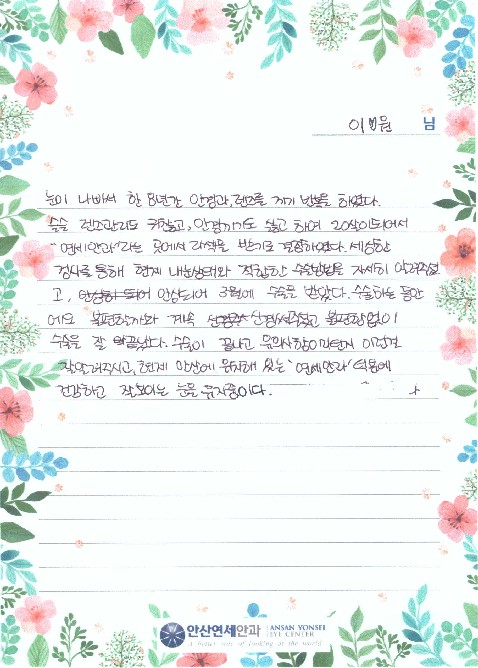 이♥원 님
눈이 나빠서 한 8년간 안경과, 렌즈를 끼기 반복을 하였다.
슬슬 렌즈관리도 귀찮고, 안경끼기도 싫고 하여 20살이되어서
"연세안과"라는 곳에서 라식을 받기로 결정하였다. 세심한
검사를 통해 현재 내눈상태와 적합한 수술방법을 자세히 알려주셨
고, 안심하 되어 안심되어 3월에 수술을 받았다. 수술하는 동안
에도 불편할까봐 계속 신경써주셨고 불편함없이
수술을 잘 끝냈다. 수술이 끝나고 유의사항이라던지 이런걸
잘알려주시고, 현재 안산에 위치해 있는 '연세안과' 덕분에
건강하고 잘보이는 눈을 유지중이다.
안산연세안과 ANSAN YONSEI
EYE CENTER
A better way of looking at the world